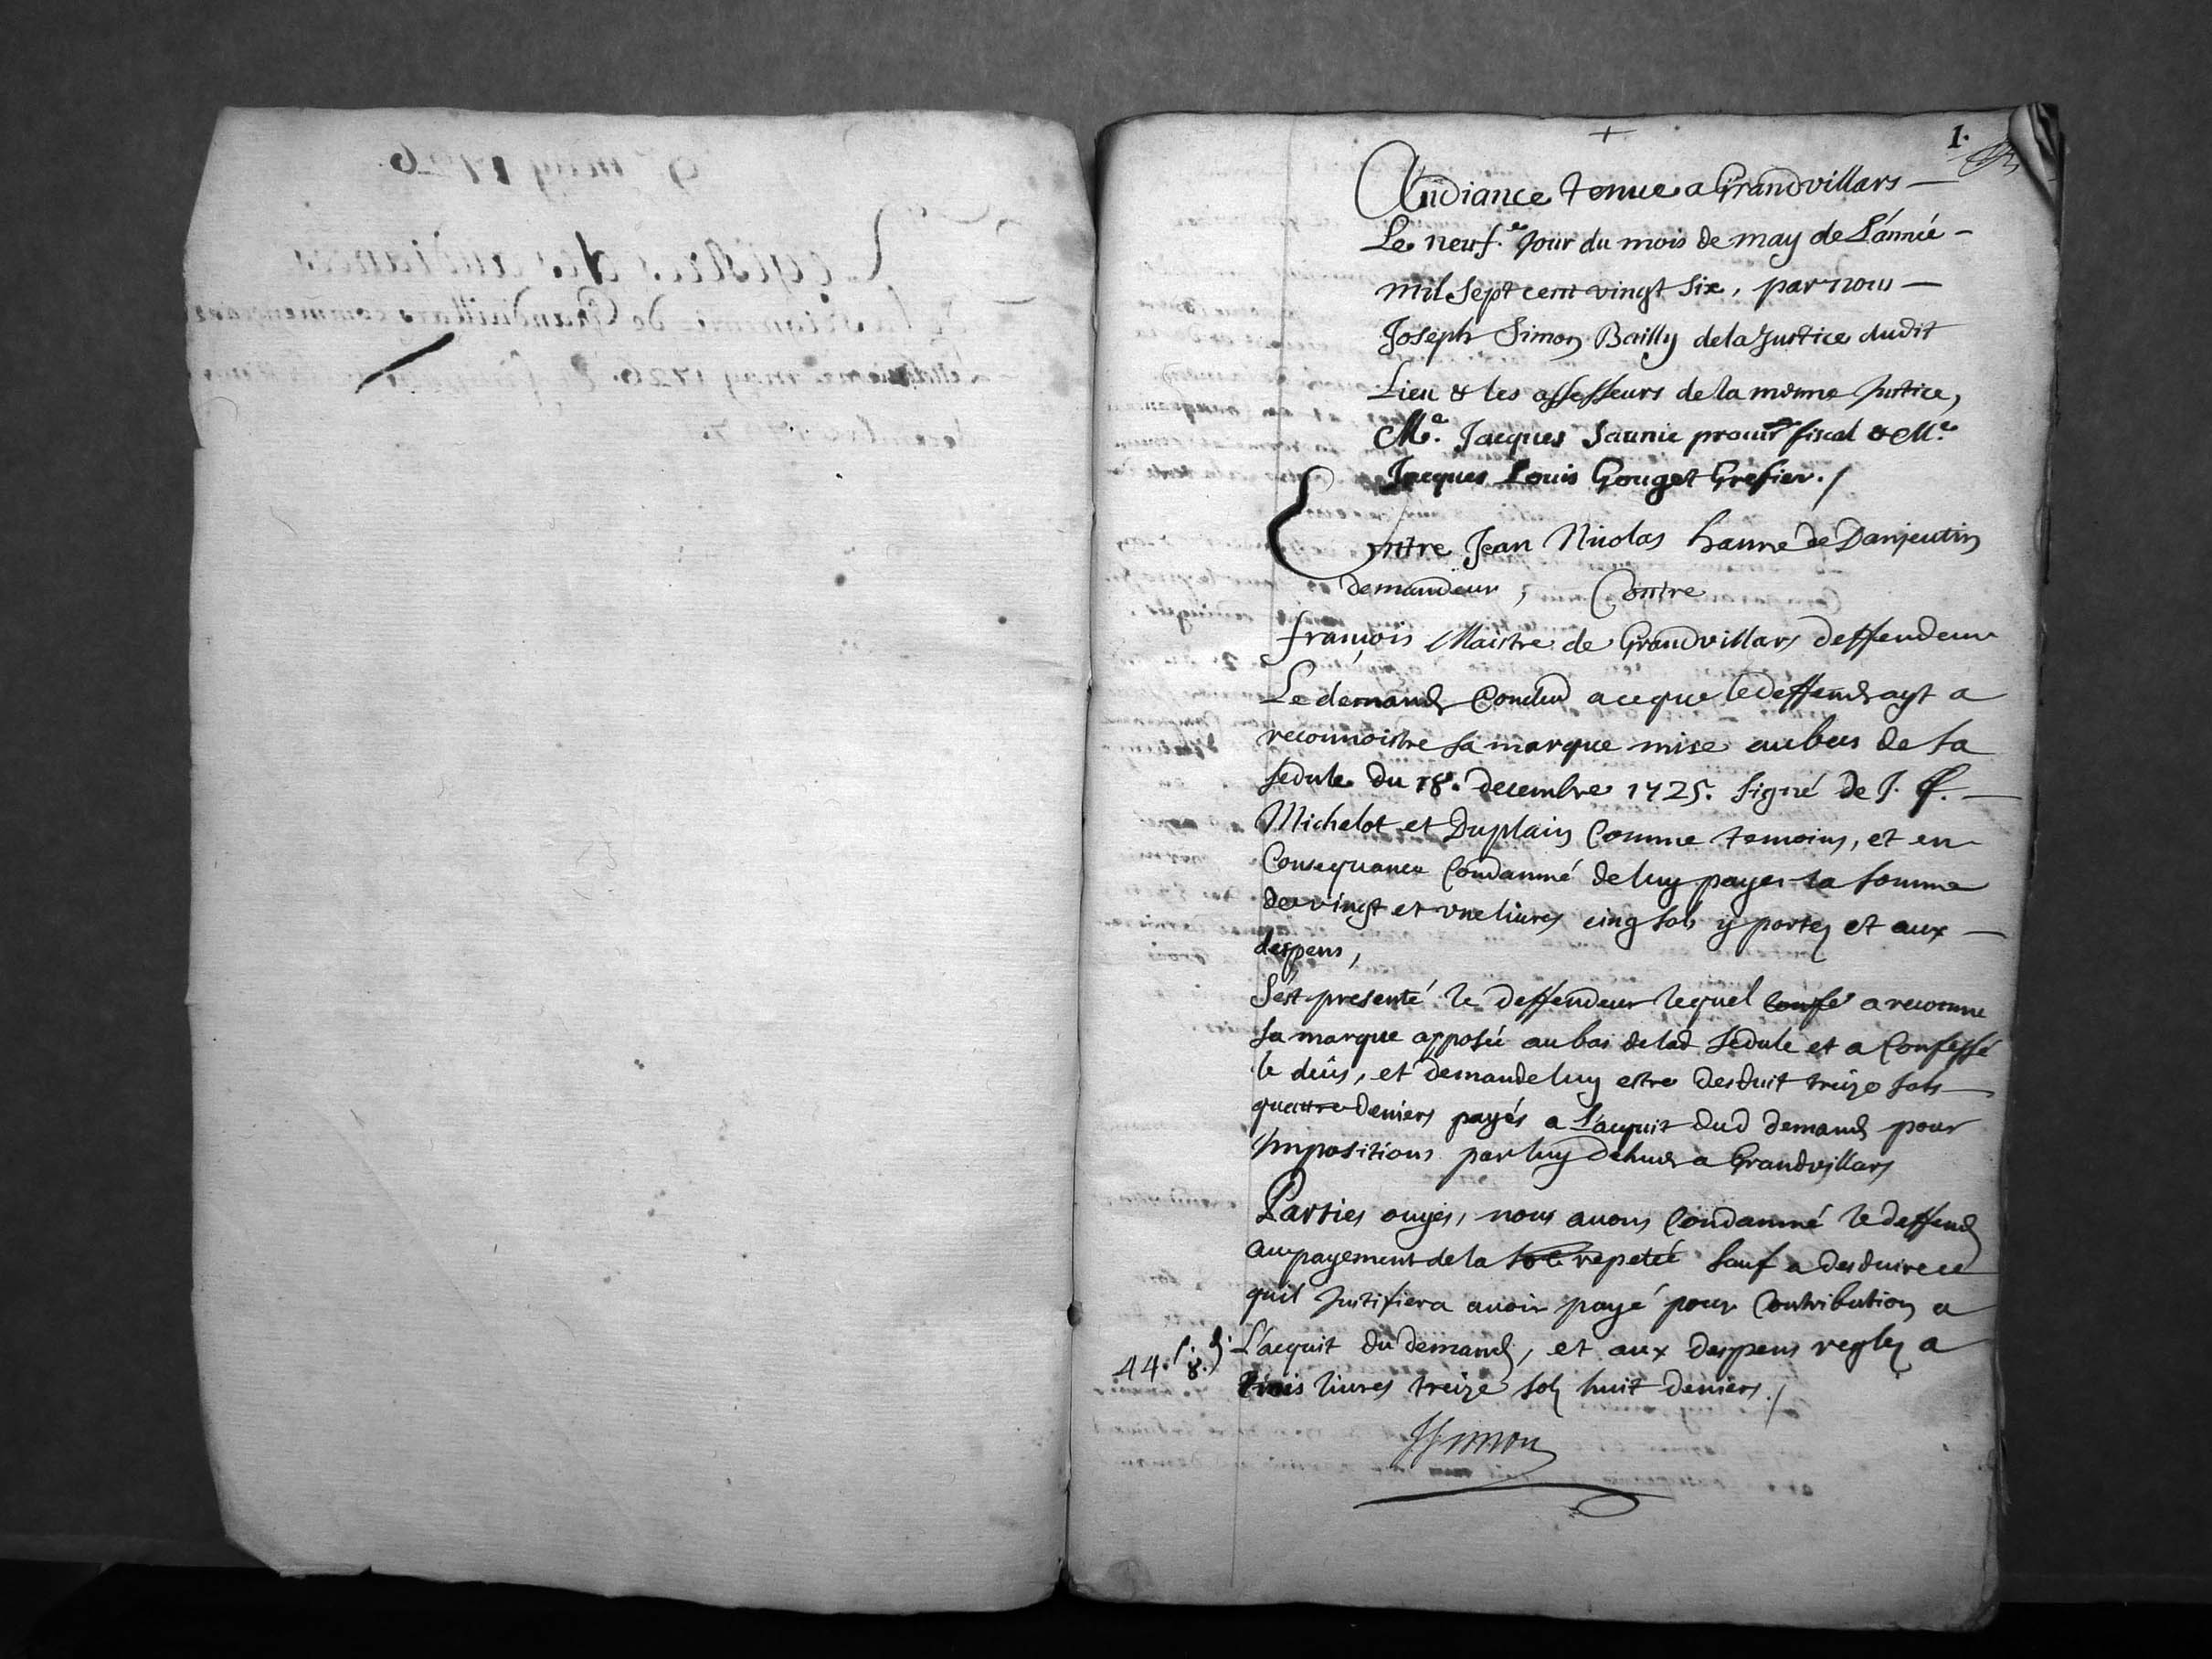 1.
Audiance tenue a Grandvillars —
Le neuf.e Jour du mois de may de L'année —
mil sept cent vingt six, par nous —
Joseph Simon Bailly de la Justice dudit
Lieu & les assesseurs de la mesme Justice,
Me. Jacques Saunie procur fiscal & Me.
Jacques Louis Gouget Grefier./
Entre Jean Nicolas hanne de Danjeutin
demandeur, Contre
françois Maistre de Grandvillars deffendeur
Le demand Conclud a ce que le deffend ayt a
reconnoistre sa marque mise au bas de la
sedule du 18e. decembre 1725. signé de J. f. —
Michelot et Duplain Comme temoins, et en
Consequance Condamné de luy payer la somme
de vingt et une livres cinq sols y portez et aux —
despens,
S'est presenté le deffendeur lequel confe a reconnu
sa marque apposée au bas de lad. sedule et a Confessé
le dûs, et demande luy estre desduit treize sols
quattre deniers payés a L'acquit dud demand pour
Impositions par luy dehues a Grandvillars
Parties ouyes, nous avons Condamné le deffend
au payement de la repeteé sauf a desduire ce
quil Justifiera avoir payé pour Contribution a
L'acquit du demand, et aux despens reglez a
trois livres treize sols huit deniers./
44. s. 8. d
JSimon